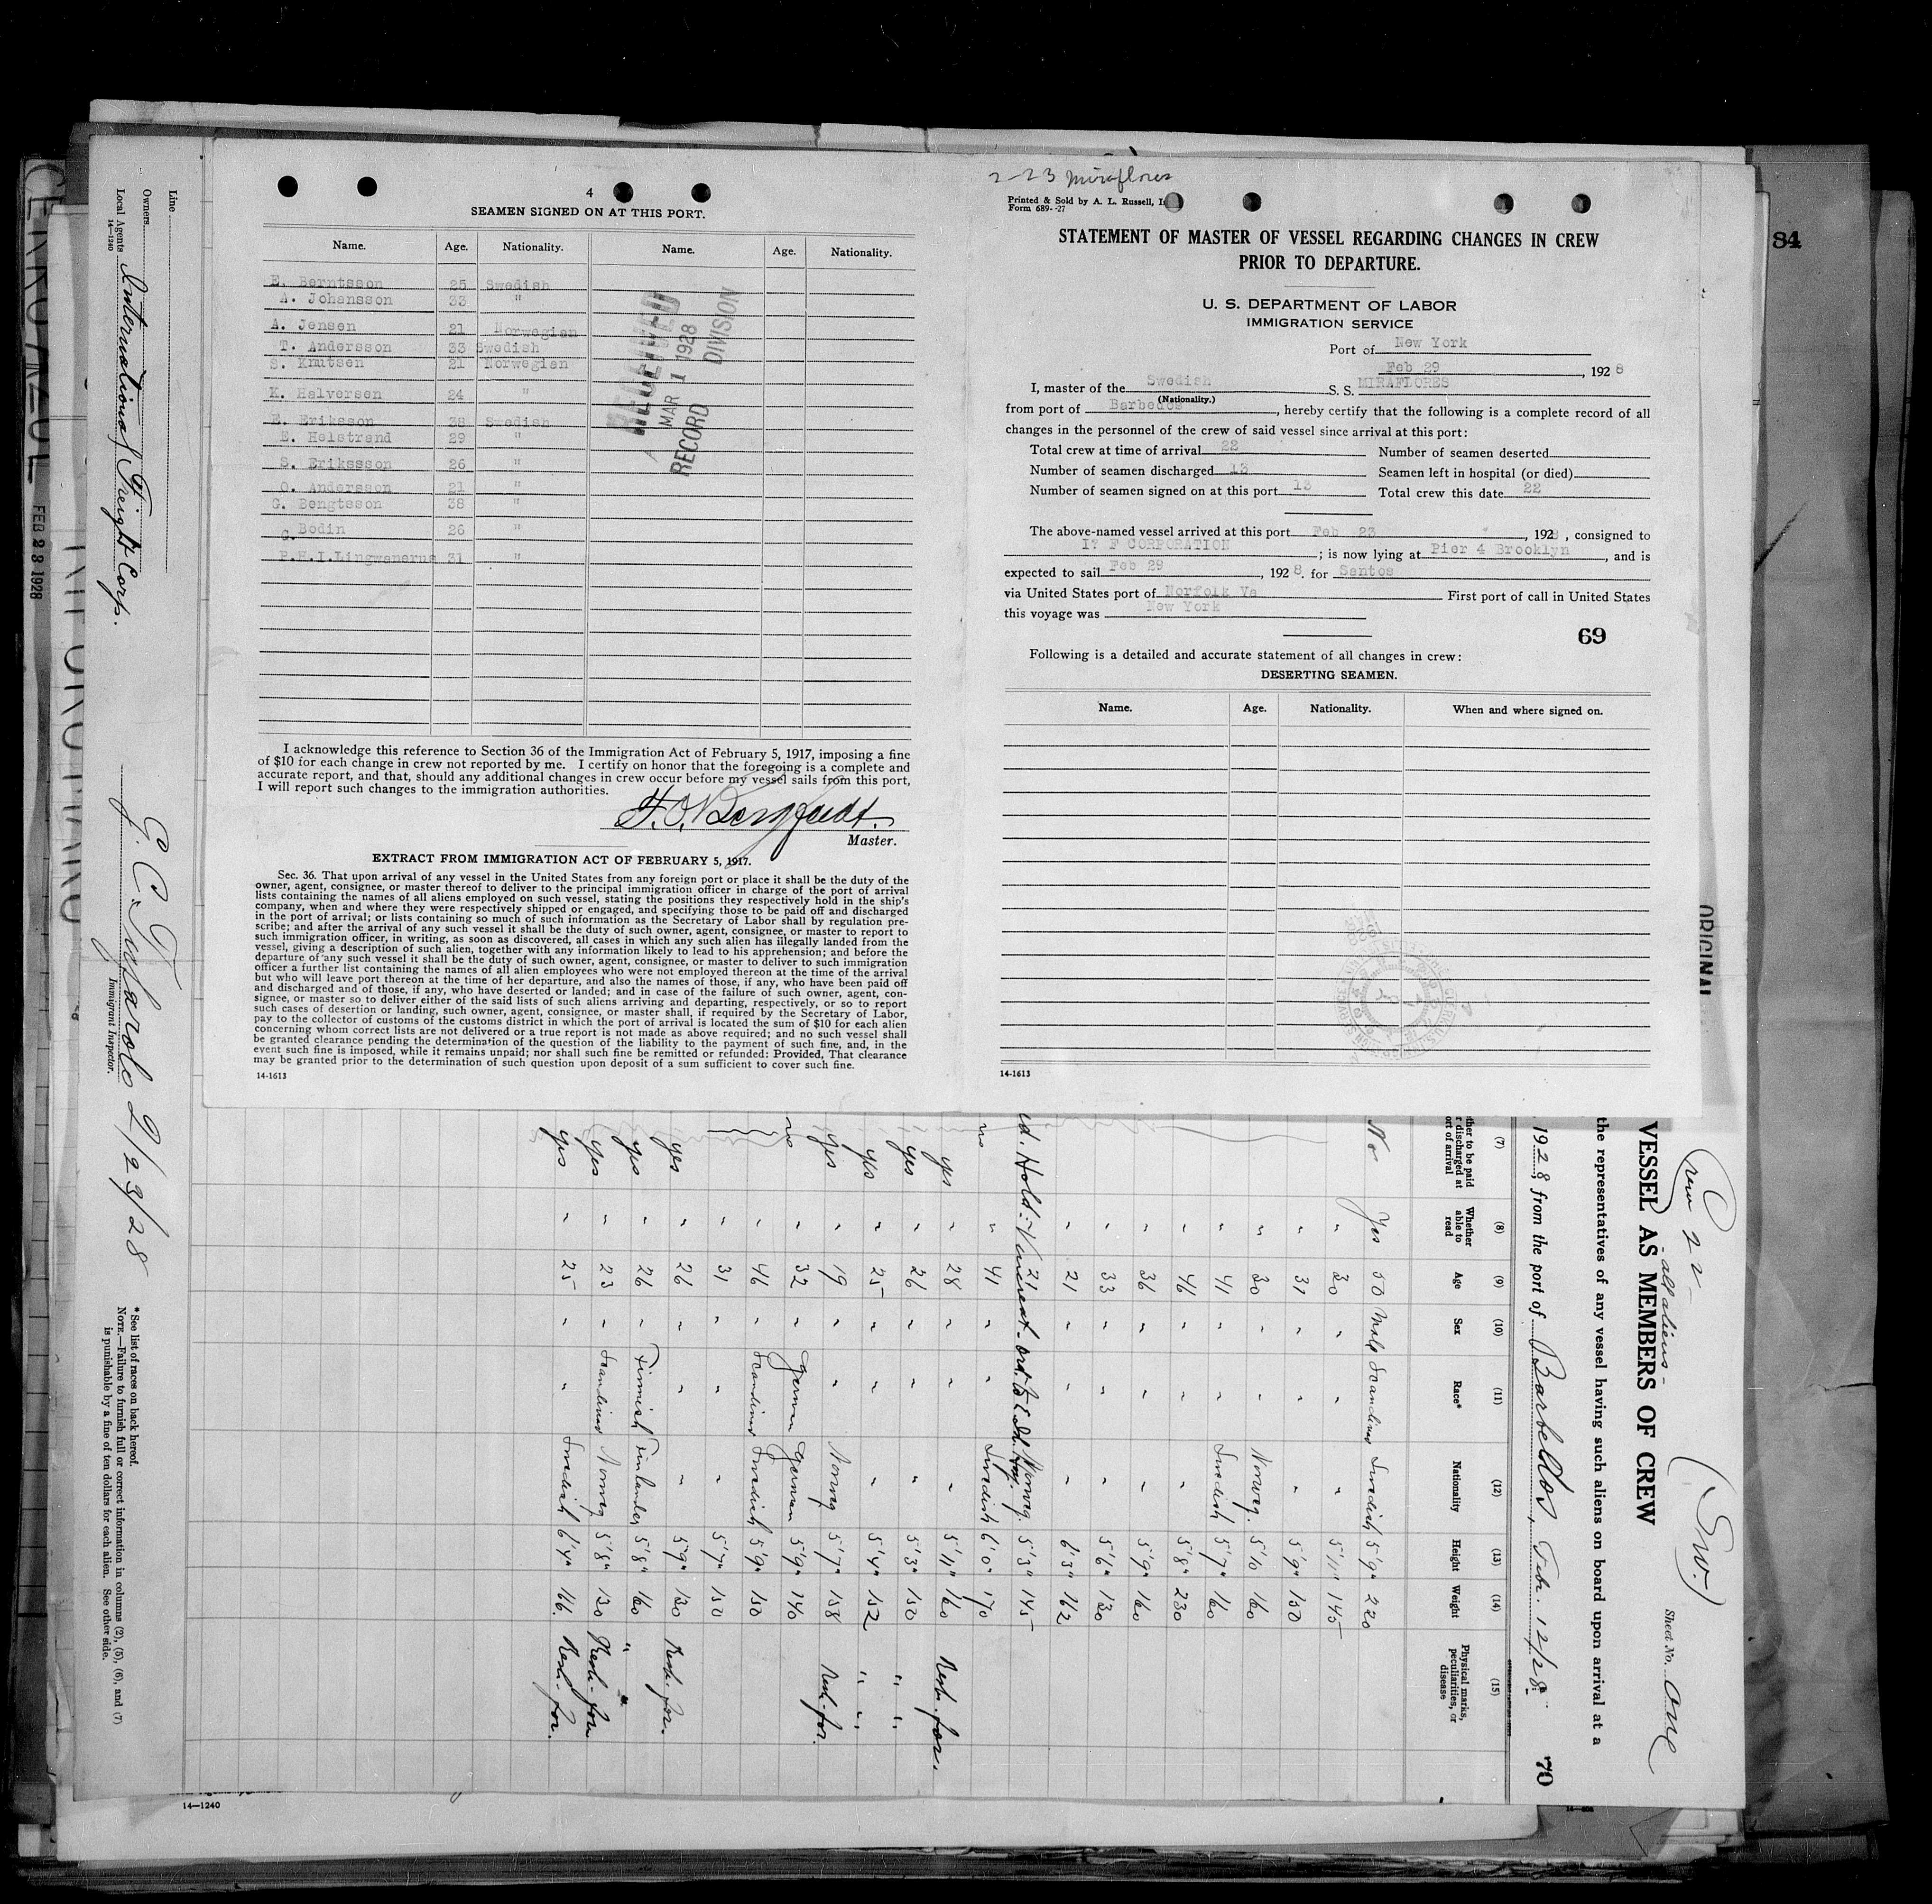 4
SEAMEN SIGNED ON AT THIS PORT.
Name. Age. Nationality. Name. Age. Nationality.
E. Berntsson 25 Swedish
A. Johansson 33 "
A. Jensen 21 Norwegian
T. Andersson 33 Swedish
S. Knutsen 21 Norwegian
K. Halversen 24 "
E. Eriksson 38 Swedish
E. Holstrand 29 "
S. Erikssson 26 "
O. Andersson 21 "
G. Bengtsson 38 "
G. Bodin 26 "
P.H.I.Lingwenerns 31 "
RECEIVED
MAR 1 1928
RECORD DIVISION
I acknowledge this reference to Section 36 of the Immigration Act of February 5, 1917, imposing a fine
of $10 for each change in crew not reported by me. I certify on honor that the foregoing is a complete and
accurate report, and that, should any additional changes in crew occur before my vessel sails from this port,
I will report such changes to the immigration authorities.
Master.
EXTRACT FROM IMMIGRATION ACT OF FEBRUARY 5, 1917.
Sec. 36. That upon arrival of any vessel in the United States from any foreign port or place it shall be the duty of the
owner, agent, consignee, or master thereof to deliver to the principal immigration officer in charge of the port of arrival
lists containing the names of all aliens employed on such vessel, stating the positions they respectively hold in the ship's
company, when and where they were respectively shipped or engaged, and specifying those to be paid off and discharged
in the port of arrival; or lists containing so much of such information as the Secretary of Labor shall by regulation pre-
scribe; and after the arrival of any such vessel it shall be the duty of such owner, agent, consignee, or master to report to
such immigration officer, in writing, as soon as discovered, all cases in which any such alien has illegally landed from the
vessel, giving a description of such alien, together with any information likely to lead to his apprehension; and before the
departure of any such vessel it shall be the duty of such owner, agent, consignee, or master to deliver to such immigration
officer a further list containing the names of all alien employees who were not employed thereon at the time of the arrival
but who will leave port thereon at the time of her departure, and also the names of those, if any, who have been paid off
and discharged and of those, if any, who have deserted or landed; and in case of the failure of such owner, agent, con-
signee, or master so to deliver either of the said lists of such aliens arriving and departing, respectively, or so to report
such cases of desertion or landing, such owner, agent, consignee, or master shall, if required by the Secretary of Labor,
pay to the collector of customs of the customs district in which the port of arrival is located the sum of $10 for each alien
concerning whom correct lists are not delivered or a true report is not made as above required; and no such vessel shall
be granted clearance pending the determination of the question of the liability to the payment of such fine, and, in the
event such fine is imposed, while it remains unpaid; nor shall such fine be remitted or refunded: Provided, That clearance
may be granted prior to the determination of such question upon deposit of a sum sufficient to cover such fine.
14-1613
2-23 Miraflores
Printed & Sold by A. L. Russell,
Form 689--27
STATEMENT OF MASTER OF VESSEL REGARDING CHANGES IN CREW
PRIOR TO DEPARTURE.
U. S. DEPARTMENT OF LABOR
IMMIGRATION SERVICE
Port of New York
Feb 29, 1928
I, master of the Swedish S. S. MIRAFLORES
(Nationality.)
from port of Barbedos, hereby certify that the following is a complete record of all
changes in the personnel of the crew of said vessel since arrival at this port:
Total crew at time of arrival 22 Number of seamen deserted
Number of seamen discharged 13 Seamen left in hospital (or died)
Number of seamen signed on at this port 13 Total crew this date 22
The above-named vessel arrived at this port Feb 23, 1928, consigned to
I? F CORPORATION; is now lying at Pier 4 Brooklyn, and is
expected to sail Feb 29, 1928. for Santos
via United States port of Norfolk Va First port of call in United States
this voyage was New York
69
Following is a detailed and accurate statement of all changes in crew:
DESERTING SEAMEN.
Name. Age. Nationality. When and where signed on.
14-1613
84
ORIGINAL
FEB 23 1928
Line
Owners
Local Agents International Freight Corp.
14-1240
2/23/28
Immigrant Inspector.
*See list of races on back hereof.
NOTE.—Failure to furnish full or correct information in columns (2), (5), (6), and (7)
is punishable by a fine of ten dollars for each alien. See other side.
14-1240
Crew 22
- all aliens -
(Sw.)
Sheet No. One
VESSEL AS MEMBERS OF CREW
the representatives of any vessel having such aliens on board upon arrival at a
1928 from the port of Barbedos, Feb. 12/28
70
(7) (8) (9) (10) (11) (12) (13) (14) (15)
Whether able to read
Age Sex Race* Nationality Height Weight Physical marks, peculiarities, or disease
No Yes 50 Male Scandinav Swedish 5'9" 220
" 30 " " " 5'11" 145
" 31 " " " 5'9" 150
" 30 " " Norweg. 5'10 160
" 41 " " Swedish 5'7" 160
" 46 " " " 5'8" 230
" 36 " " " 5'9" 160
" 33 " " " 5'6" 130
" 21 " " " 6'3" 162
21 Norweg. 5'3" 145
no " 41 " " Swedish 6'0" 170
yes " 28 " " " 5'11" 160
yes " 26 " " " 5'3" 150 " "
yes " 25 " " " 5'4" 152 " "
yes " 19 " " Norweg 5'7" 158
no " 32 " German German 5'9" 140
" 46 " Scandinav Swedish 5'9" 150
" 31 " " " 5'7" 150
yes " 26 " " " 5'9" 130
yes " 26 " Finnish Finlander 5'8" 160 "
yes " 23 " Scandinav Norweg 5'8" 130
yes " 25 " " Swedish 6'4" 116.